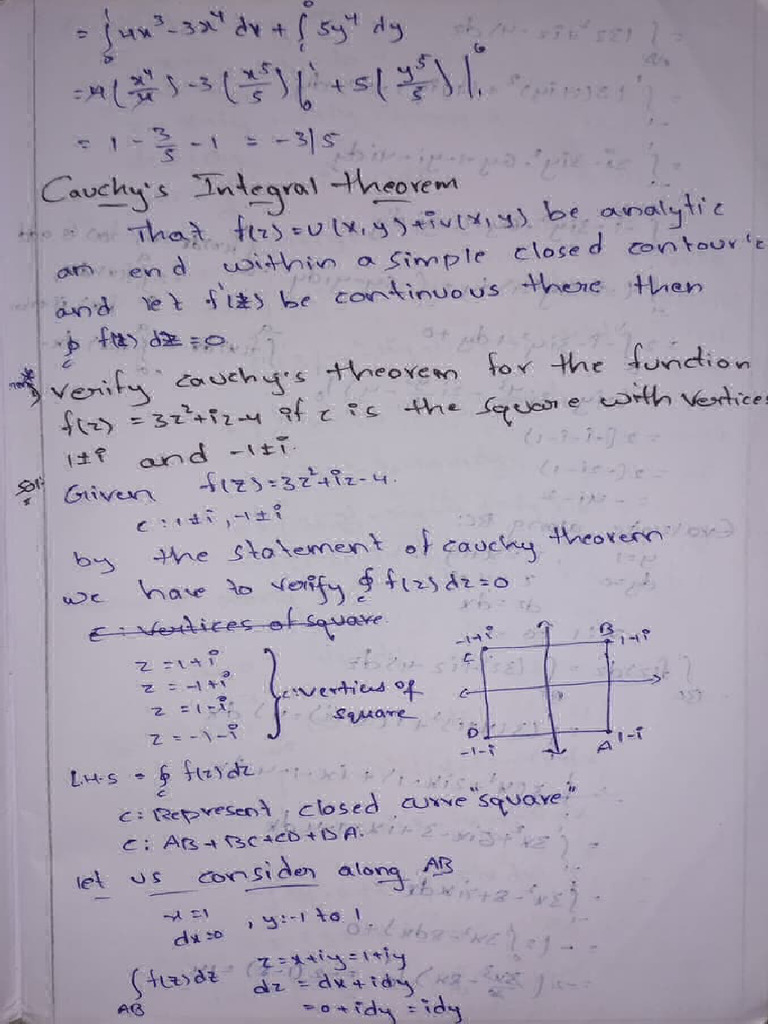 = ∫₀¹ 4x³-3x⁴ dx + ∫₁⁰ 5y⁴ dy
= 4(x⁴/4) - 3(x⁵/5)|₀¹ + 5(y⁵/5)|₁⁰
= 1 - 3/5 - 1 = -3/5
Cauchy's Integral theorem
That f(z)=u(x,y)+iv(x,y) be analytic
an end within a simple closed contour 'c
and let f'(z) be continuous there then
∮c f(z) dz = 0
verify cauchy's theorem for the function
f(z) = 3z²+iz-4 if c is the square with vertices
1±i and -1±i.
Sol: Given f(z)=3z²+iz-4.
c: 1±i, -1±i
by the statement of cauchy theorem
we have to verify ∮c f(z) dz=0
c: vertices of square
z = 1+i
z = -1+i
z = 1-i
z = -1-i
c: vertices of
square
-1+i
C
B
1+i
D
-1-i
A
1-i
L.H.S = ∮c f(z) dz
c: Represent closed curve "square"
C: AB + BC + CD + DA.
let us consider along AB
x=1
dx=0 , y: -1 to 1
z = x+iy = 1+iy
∫AB f(z) dz dz = dx + idy
= 0 + idy = idy